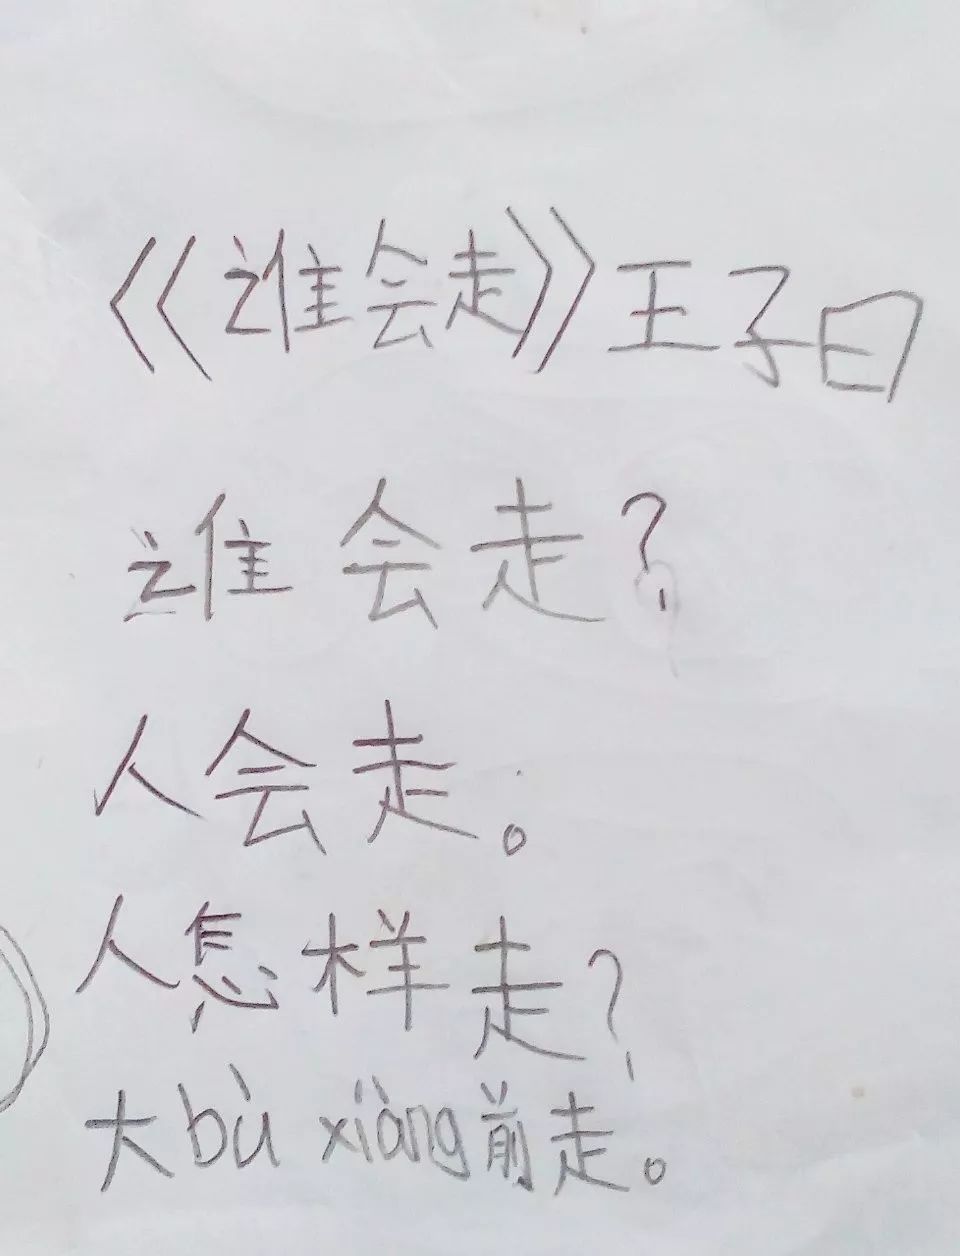 《谁会走》王子曰
谁会走？
人会走。
人怎样走？
大bù xiàng前走。